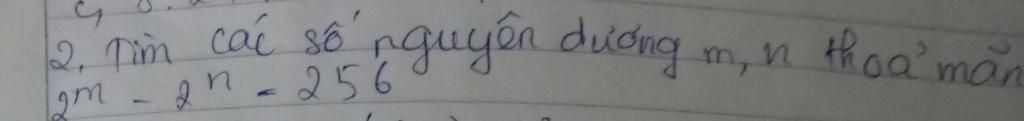 2. Tìm các số nguyên dương m, n thoả mãn
2^m - 2^n = 256